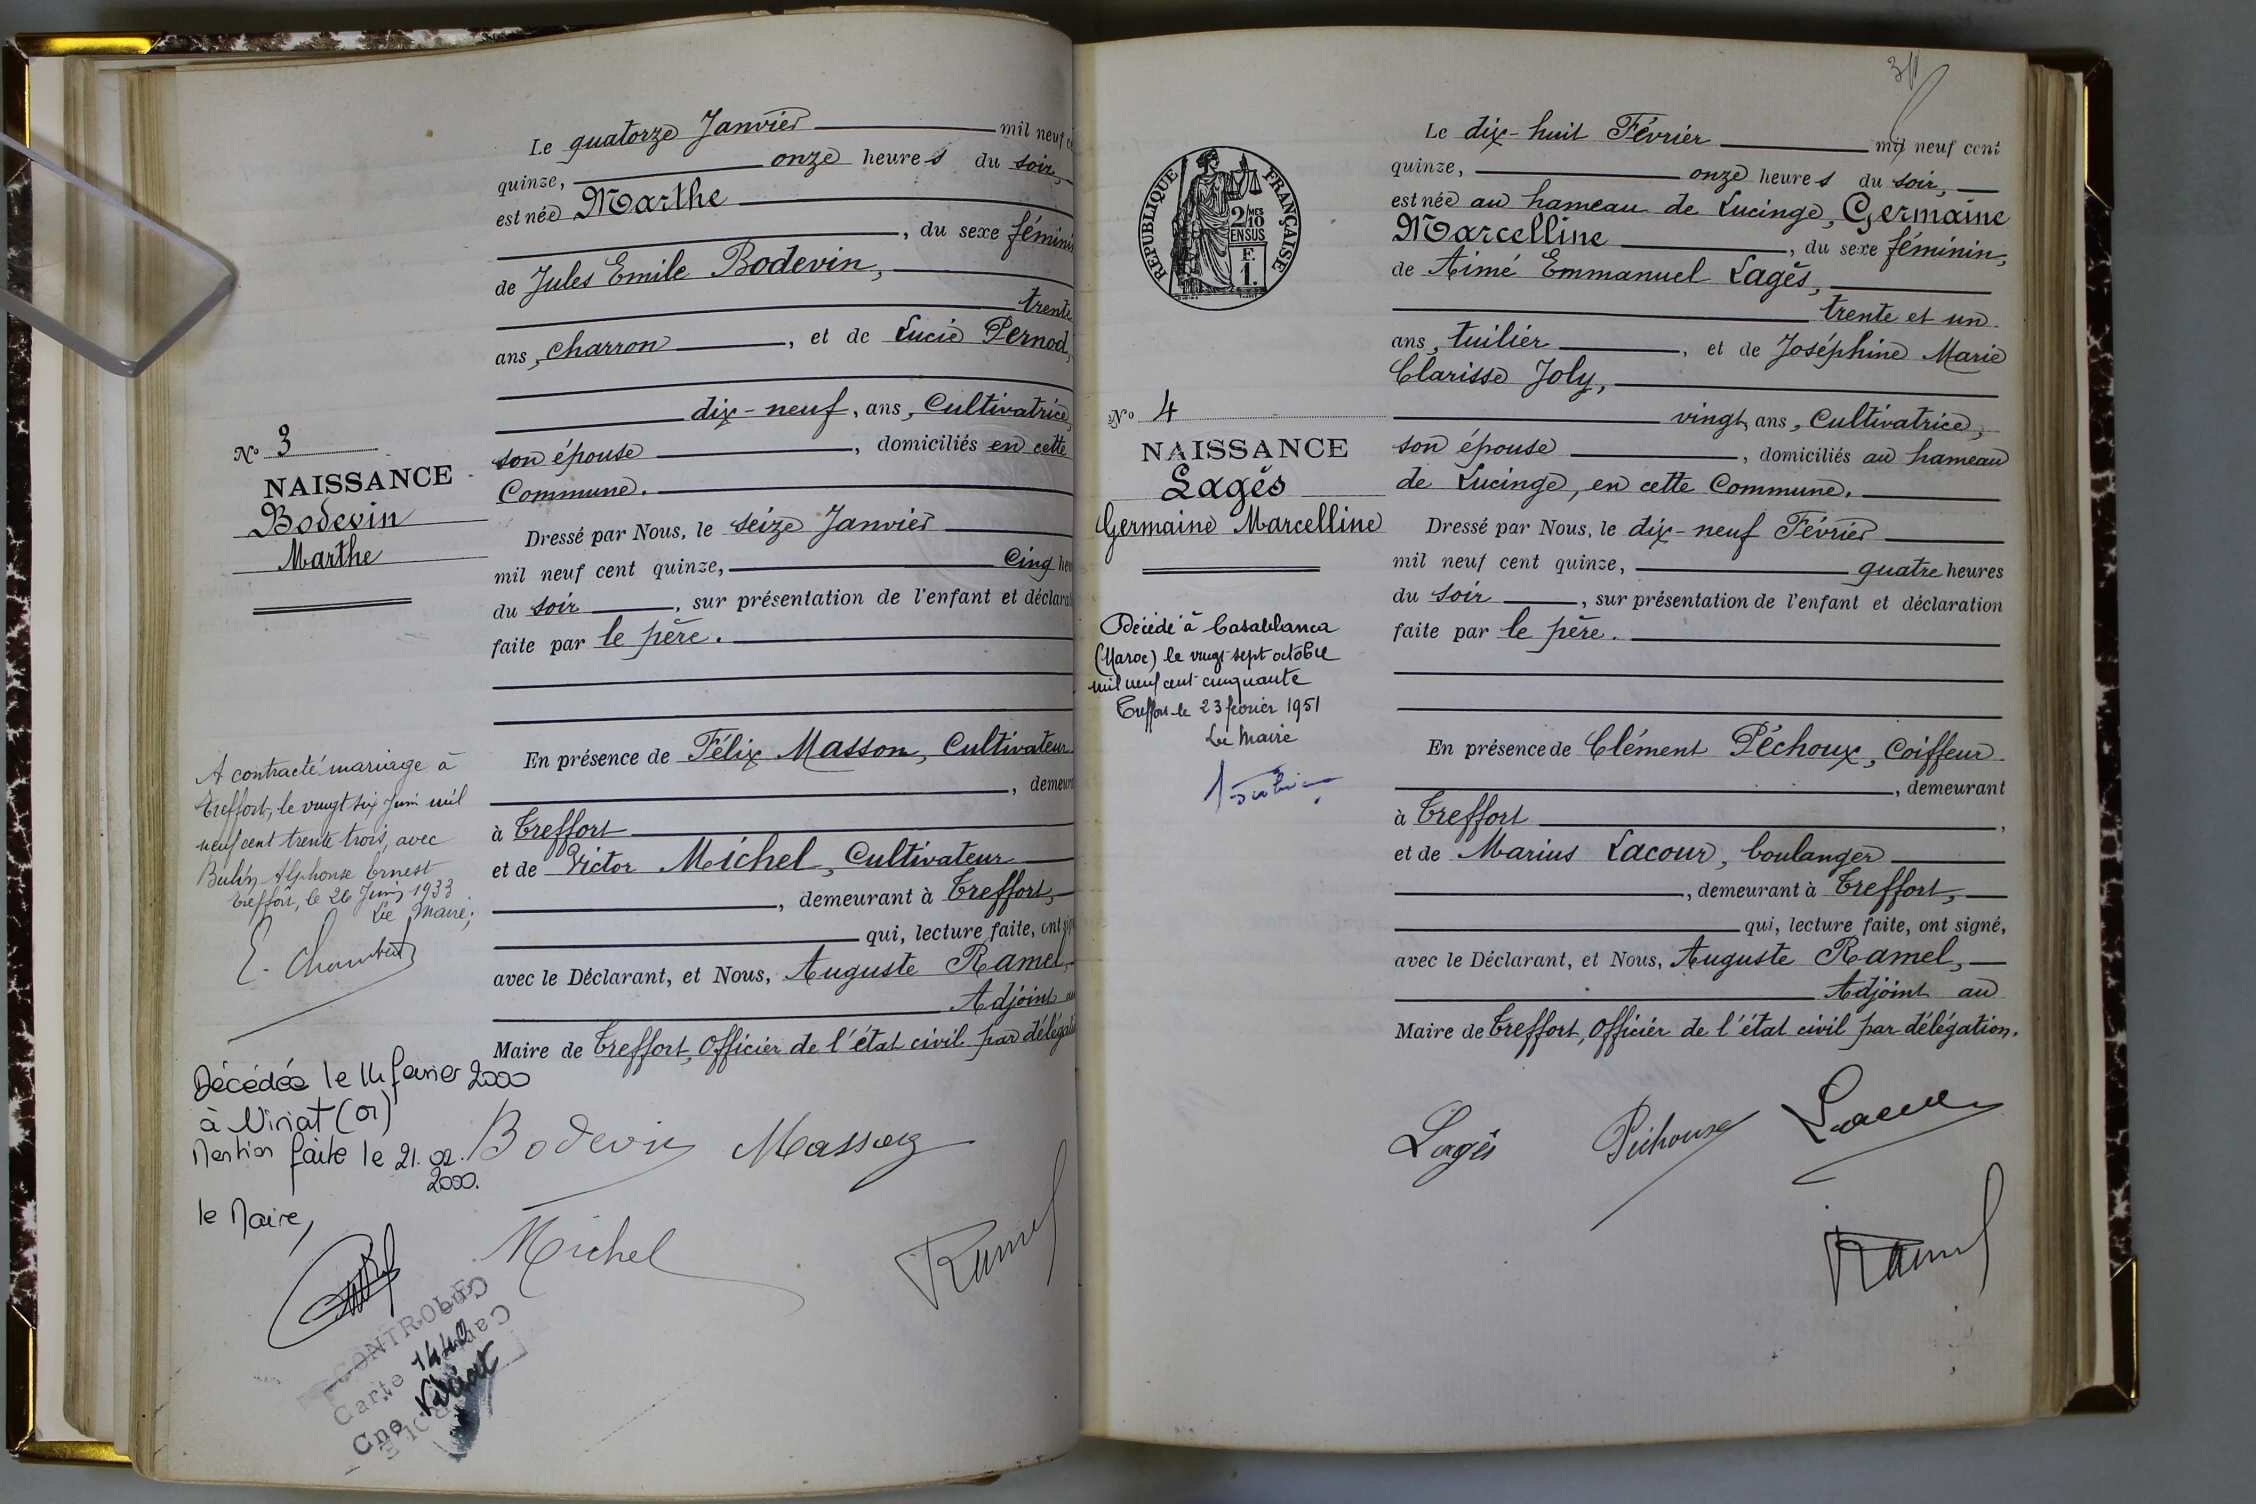 Le quatorze Janvier mil neuf
quinze, onze heures du soir,
est née Marthe
, du sexe féminin
de Jules Emile Bodevin,
trente
ans, charron , et de Lucie Pernod,
dix-neuf, ans, Cultivatrice,
son épouse , domiciliés en cette
Commune.
Dressé par Nous, le seize Janvier
mil neuf cent quinze, cinq
du soir , sur présentation de l'enfant et
faite par le père.
En présence de Félix Masson, Cultivateur
,
à Treffort
et de Victor Michel, Cultivateur
, demeurant à Treffort,
qui, lecture faite, ont
avec le Déclarant, et Nous, Auguste Ramel,
Adjoint au
Maire de Treffort, Officier de l'état civil par
Bodevin Masson
Michel
Ramel
No 3
NAISSANCE
Bodevin
Marthe
A contracté mariage à
Treffort, le vingt six Juin mil
neuf cent trente trois, avec
Alphonse Ernest
Treffort, le 26 Juin 1933
Le Maire;
Décédée le 14 février 2000
à Viriat (01)
Mention faite le 21.02.
2000.
le Maire,
CONTROLE
Carte 1442
Cne Viriat
311
Le dix-huit Février mil neuf cent
quinze, onze heures du soir,
est née au hameau de Lucinge, Germaine
Marcelline , du sexe féminin,
de Aimé Emmanuel Lagès,
trente et un
ans, tuilier , et de Joséphine Marie
Clarisse Joly,
vingt, ans, Cultivatrice,
son épouse , domiciliés au hameau
de Lucinge, en cette Commune.
Dressé par Nous, le dix-neuf Février
mil neuf cent quinze, quatre heures
du soir , sur présentation de l'enfant et déclaration
faite par le père.
En présence de Clément Péchoux, Coiffeur
, demeurant
à Treffort ,
et de Marius Lacour, boulanger
, demeurant à Treffort,
qui, lecture faite, ont signé,
avec le Déclarant, et Nous, Auguste Ramel,
Adjoint au
Maire de Treffort, Officier de l'état civil par délégation.
Lagès Péchoux Lacour
Ramel
REPUBLIQUE FRANÇAISE
2/10 MES
EN SUS
F.
1.
No 4
NAISSANCE
Lagès
Germaine Marcelline
Décédé à Casablanca
(Maroc) le vingt sept octobre
mil neuf cent cinquante
Treffort le 23 février 1951
Le Maire